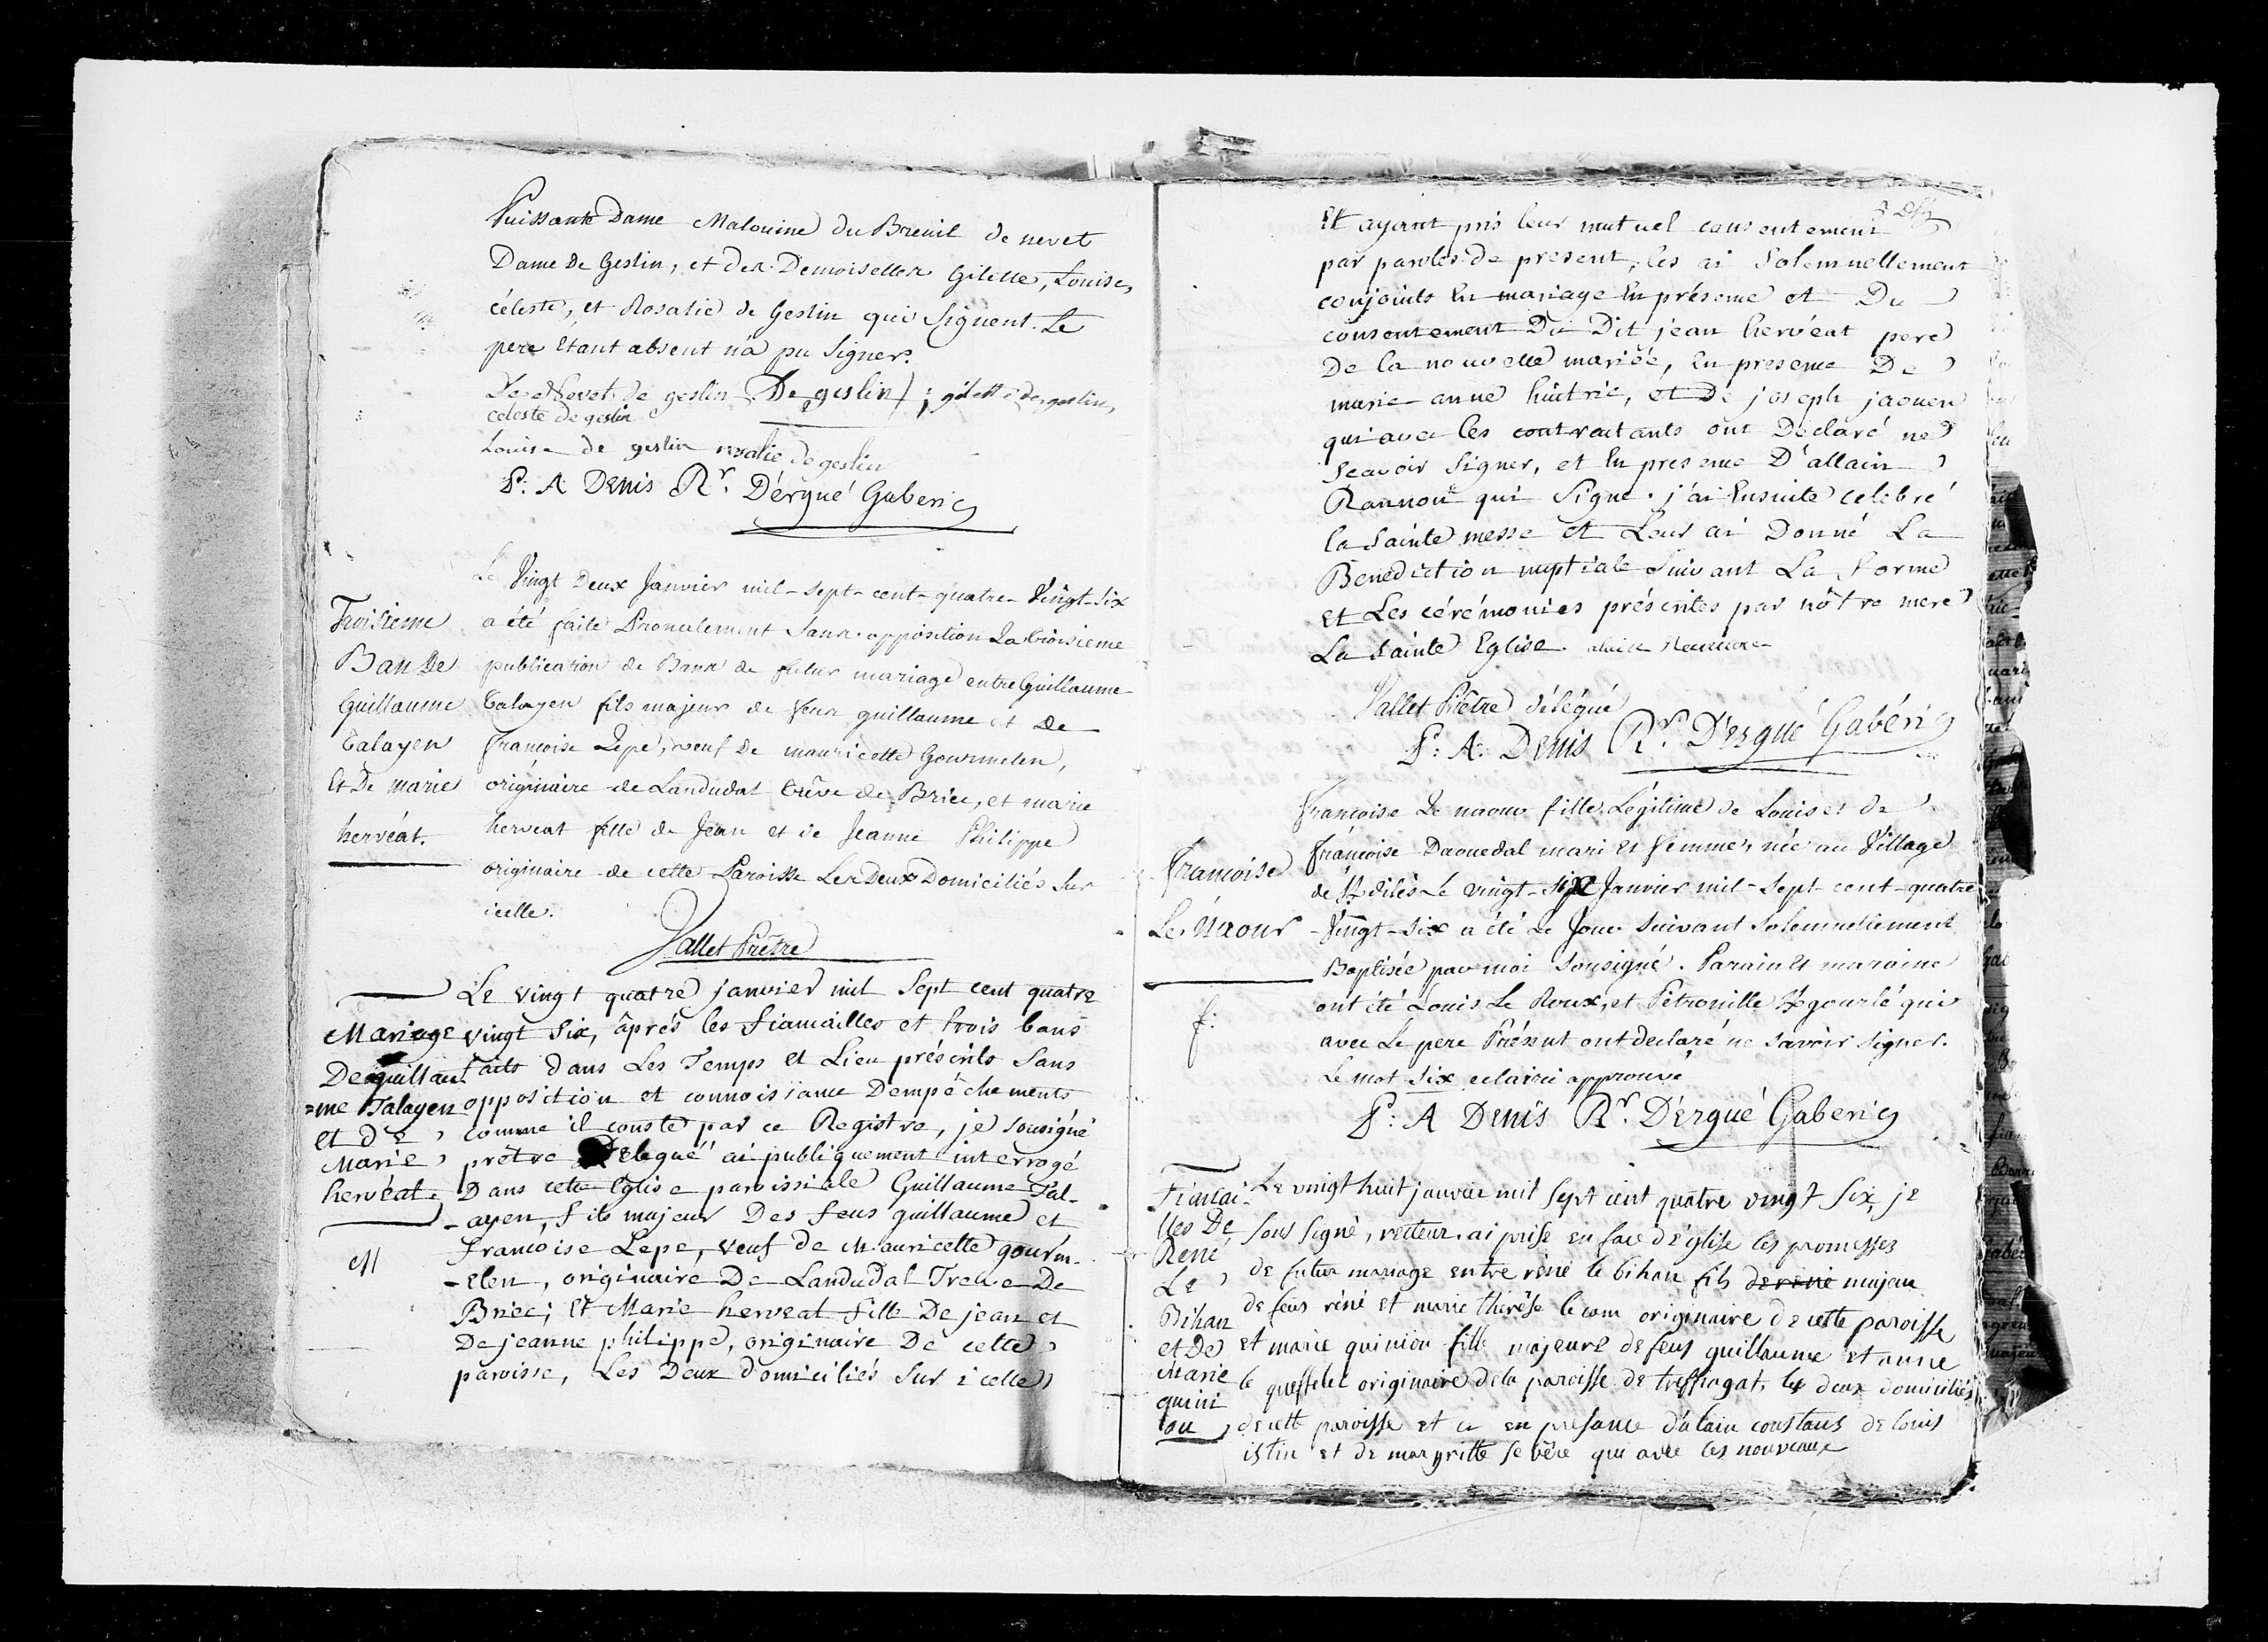 Puissante Dame Malouine du Breuil de nevet
Dame de Geslin, et des Demoiselles Gilette, Louise,
céleste, et Rosalie de Geslin qui Signent. Le
pere étant absent n'a pu Signer.
De Nevet de geslin De geslin ; gilette de geslin,
celeste de geslin
Louise de geslin rosalie de geslin
P: A: Denis Rr. D'ergué Gaberic
Troisieme
Ban De
Guillaume
Talayen
Et De marie
hervéat.
Le Vingt Deux Janvier mil-sept-cent-quatre-Vingt-six
a été faite Pronalement Sans opposition La troisieme
publication de Bans de futur mariage entre Guillaume
Talayen fils majeur de feux guillaume et De
françoise Lepe, veuf De mauricette Gourmelen,
originaire de Landudal trêve de Briec, et marie
herveat fille de Jean et de Jeanne Philippe
originaire de cette Paroisse Les Deux Domiciliés Sur
icelle.
Vallet Prêtre
Mariage
De guillau
=me Talayen
et de
Marie
hervéat.
M
Le vingt quatre janvier mil Sept cent quatre
vingt Six, âprés les fiancailles et trois bans
faits dans Les Temps et Lieu préscrits Sans
opposition et connoissance D'empéchements
comme il conste par ce Registre, je Sousigné
prêtre Délegué ai publiquement interrogé
Dans cette Eglise paroissiale Guillaume Tal-
-ayen, fils majeur Des feus guillaume et
francoise Lepe, veuf de Mauricette gourm-
-elen, originaire De Landudal Treve De
Briec; Et Marie herveat fille De jean et
De jeanne philippe, originaire De cette
paroisse, Les Deux domiciliés Sur icelle
Et ayant pris leur mutuel consentement
par paroles de present, les ai Solemnellement
conjoints En mariage En présence et Du
consentement Du Dit jean hervéat pere
De la nouvelle mariée, En presence De
marie anne huitric, et De joseph jaouen
qui avec les contractants ont Déclaré ne
Scavoir Signer, et En presence D'allain
Rannou qui Signe. j'ai Ensuite celebré
la Sainte messe et Leur ai Donné La
Benediction nuptiale Suivant La forme
et Les cérémonies préscrites par nôtre mere
La Sainte Eglise. alain Rannou
Vallet Prêtre délégué
P: A: Denis Rr. D'ergué Gabéric
Françoise
Le Naour
f:
françoise Le naour fille Légitime de Louis et de
françoise Daouedal mari et femme, née au Village
de Le vingt-Six Janvier mil-Sept-cent-quatre
-Vingt-Six a été Le Jour Suivant Solemnellement
Baptisée par moi Sousigné. Parain et maraine
ont été Louis Le Roux, et Pétronille gourlé qui
avec Le pere Présent ont declaré ne savoir signer.
Le mot Six eclairci approuvé
P: A Denis Rr. D'ergué Gaberic
Fiancai-
lles De
René
Le
Bihan
et De
Marie
quini
ou
Le vingt huit janvier mil sept cent quatre vingt six, je
sous signé, recteur, ai prise en face d'église les promesses
de futur mariage entre réné le bihan fils de réné majeur
de feus réné et marie thérése le corn originaire de cette paroisse
et marie quiniou fille majeure de feus guillaume et anne
le queffelec originaire de la paroisse de treffiagat, les deux domiciliés
de cette paroisse et ce en presance d'alain constans de louis
istin et de margritte le bêre qui avec les nouveaux